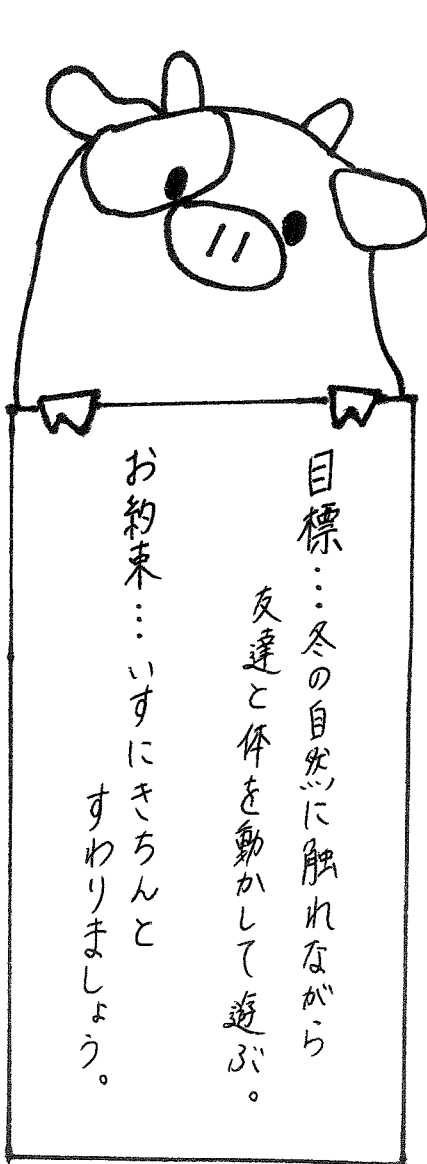 目標…冬の自然に触れながら
友達と体を動かして遊ぶ。
お約束…いすにきちんと
すわりましょう。